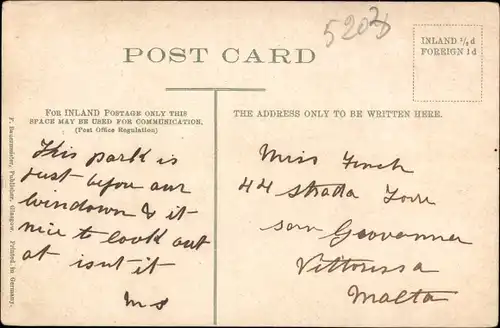 5202
POST CARD
INLAND ½d
FOREIGN 1d
FOR INLAND POSTAGE ONLY THIS
SPACE MAY BE USED FOR COMMUNICATION.
(Post Office Regulation)
THE ADDRESS ONLY TO BE WRITTEN HERE.
This park is
just before our
windows & it
nice to look out
at isnt it
M S
Miss Finch
44 Strada Torre
San Geovanner
Vittorissa
Malta
F. Bauermeister, Publisher, Glasgow. Printed in Germany.